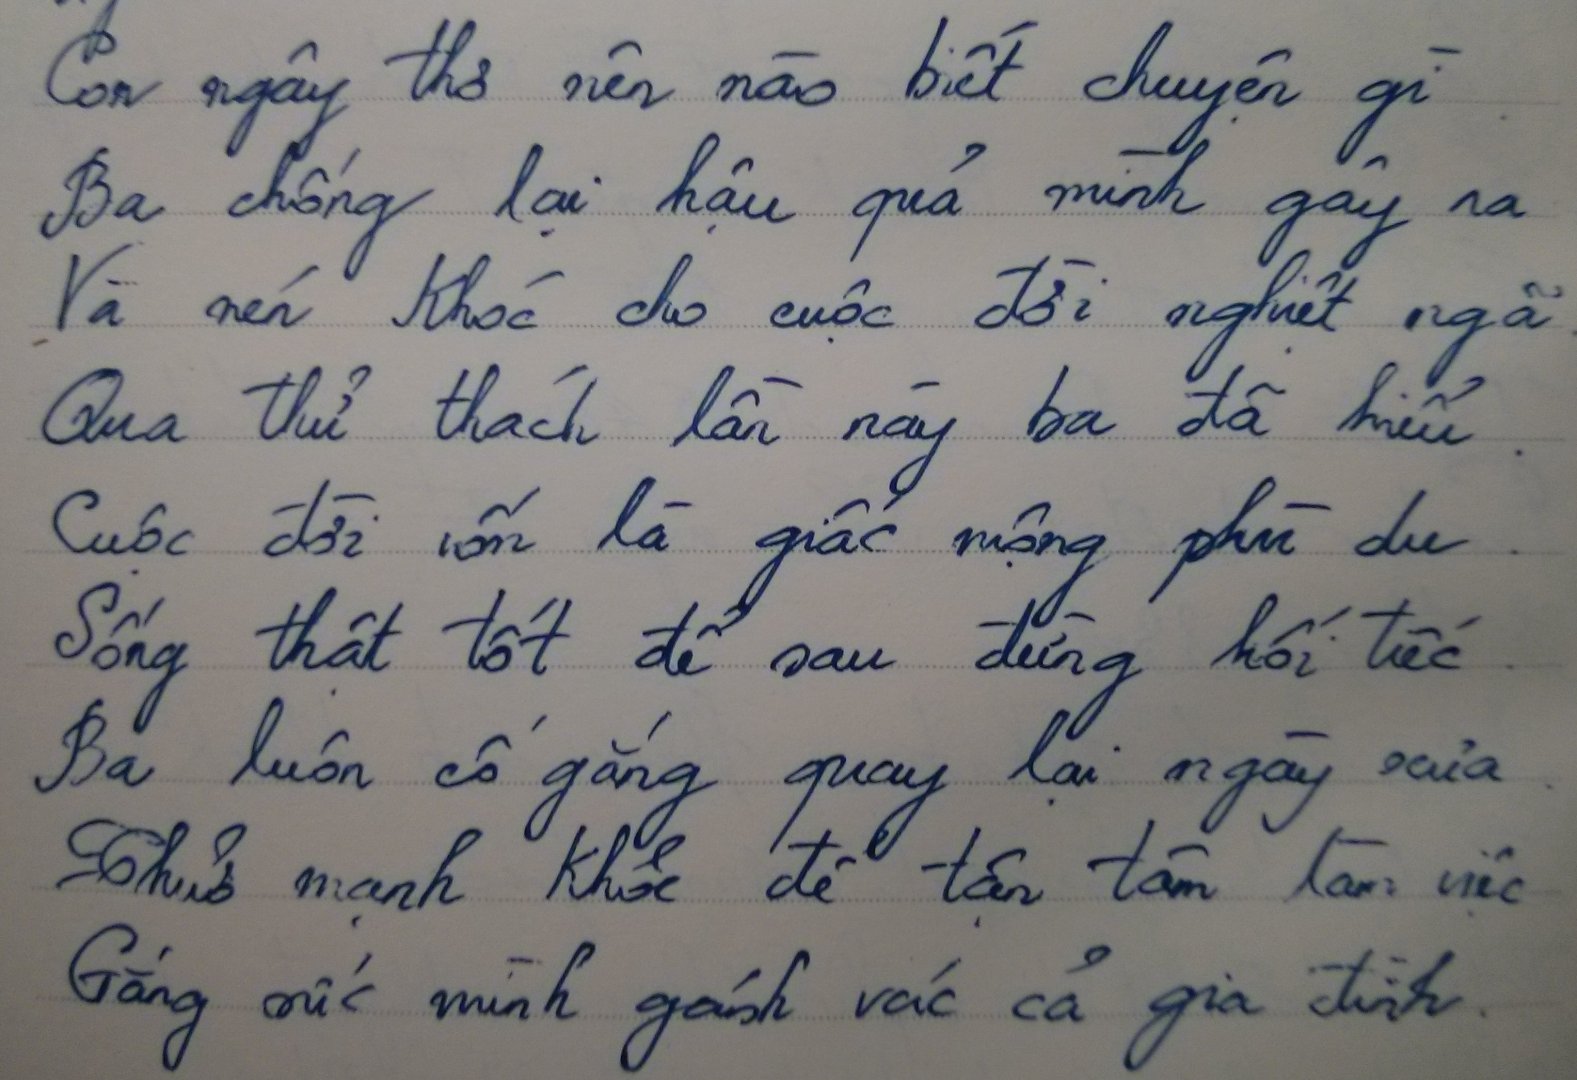 Con ngây thơ nên nào biết chuyện gì
Ba chống lại hậu quả mình gây ra
Và nén khóc cho cuộc đời nghiệt ngã
Qua thử thách lần này ba đã hiểu
Cuộc đời vốn là giấc mộng phù du
Sống thật tốt để sau đừng hối tiếc
Ba luôn cố gắng quay lại ngày xưa
Thuở mạnh khỏe để tận tâm làm việc
Gắng sức mình gánh vác cả gia đình.